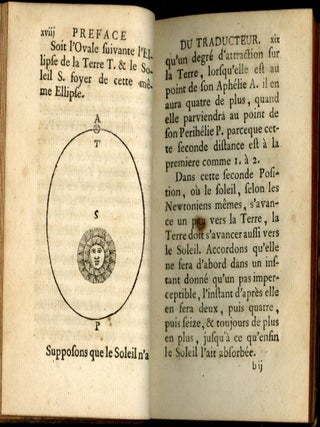 xviij PREFACE
Soit l'Ovale suivante l'El-
lipse de la Terre T. & le So-
leil S. foyer de cette mê-
me Ellipse.
A
T
S
P
Supposons que le Soleil n'a
DU TRADUCTEUR. xix
qu'un degré d'attraction sur
la Terre, lorsqu'elle est au
point de son Aphélie A. il en
aura quatre de plus, quand
elle parviendrà au point de
son Perihélie P. parceque cet-
te seconde distance est à la
premiere comme 1. à 2.
Dans cette seconde Posi-
tion, où le soleil, selon les
Newtoniens mêmes, s'avan-
ce un peu vers la Terre, la
Terre doit s'avancer aussi vers
le Soleil. Accordons qu'elle
ne fera d'abord dans un ins-
tant donné qu'un pas imper-
ceptible, l'instant d'après elle
en fera deux, puis quatre,
puis seize, & toujours de plus
en plus, jusqu'à ce qu'enfin
le Soleil l'ait absorbée.
bij